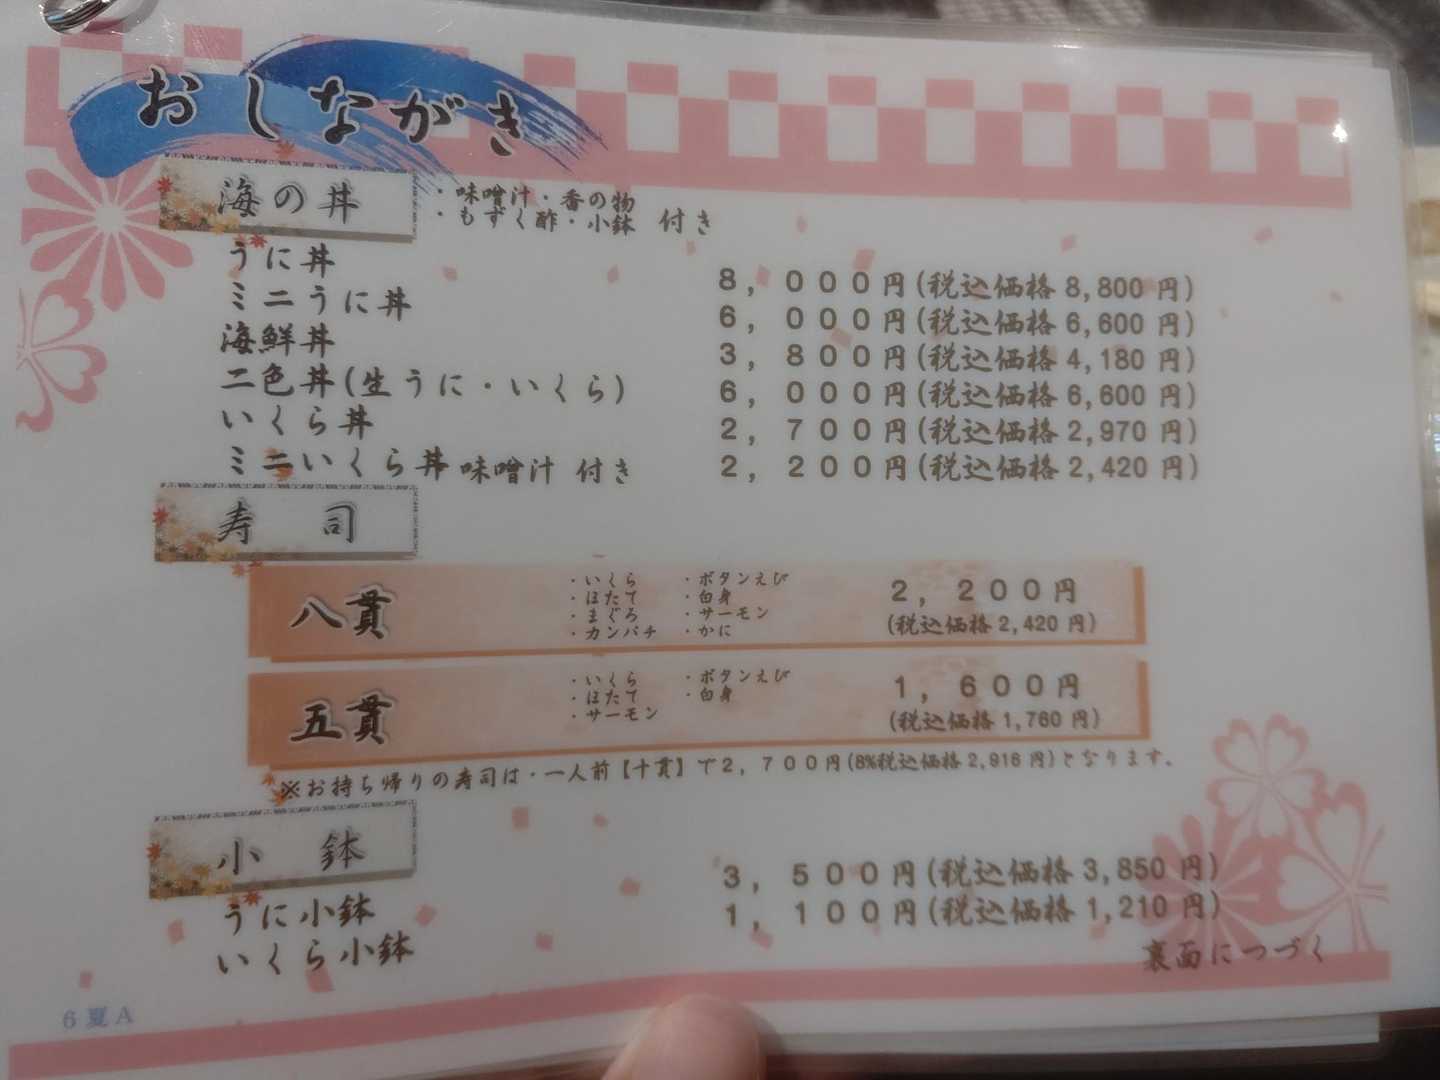 おしながき
海の丼 ・味噌汁・香の物
・もずく酢・小鉢 付き
うに丼 8,000円(税込価格 8,800 円)
ミニうに丼 6,000円(税込価格 6,600 円)
海鮮丼 3,800円(税込価格 4,180 円)
二色丼(生うに・いくら) 6,000円(税込価格 6,600 円)
いくら丼 2,700円(税込価格 2,970 円)
ミニいくら丼 味噌汁 付き 2,200円(税込価格 2,420 円)
寿 司
八貫 2,200円
(税込価格 2,420 円)
・いくら ・ボタンえび
・ほたて ・白身
・まぐろ ・サーモン
・カンパチ ・かに
五貫 1,600円
(税込価格 1,760 円)
・いくら ・ボタンえび
・ほたて ・白身
・サーモン
※お持ち帰りの寿司は・一人前【十貫】で2,700円(8%税込価格 2,916 円)となります.
小 鉢
うに小鉢 3,500円(税込価格 3,850 円)
いくら小鉢 1,100円(税込価格 1,210 円)
裏面につづく
6 夏 A